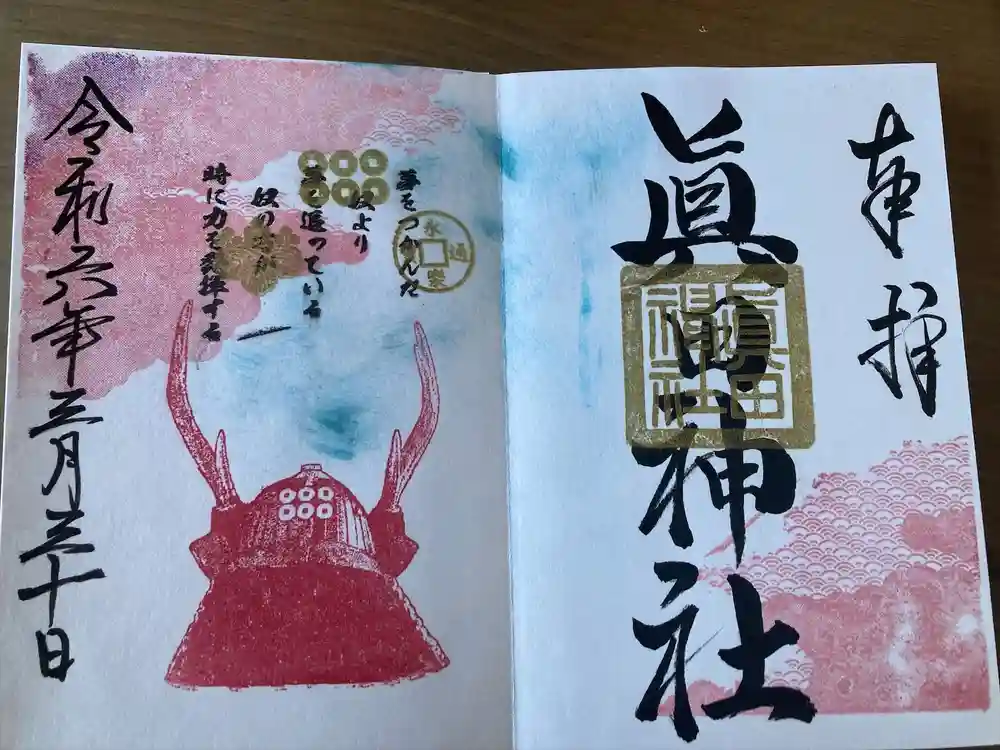 奉拝
眞田神社
眞田
神社
夢をつかんだ
奴より
夢を追っている
奴の方が
時に力を発揮する
永
通
令和六年三月三十日